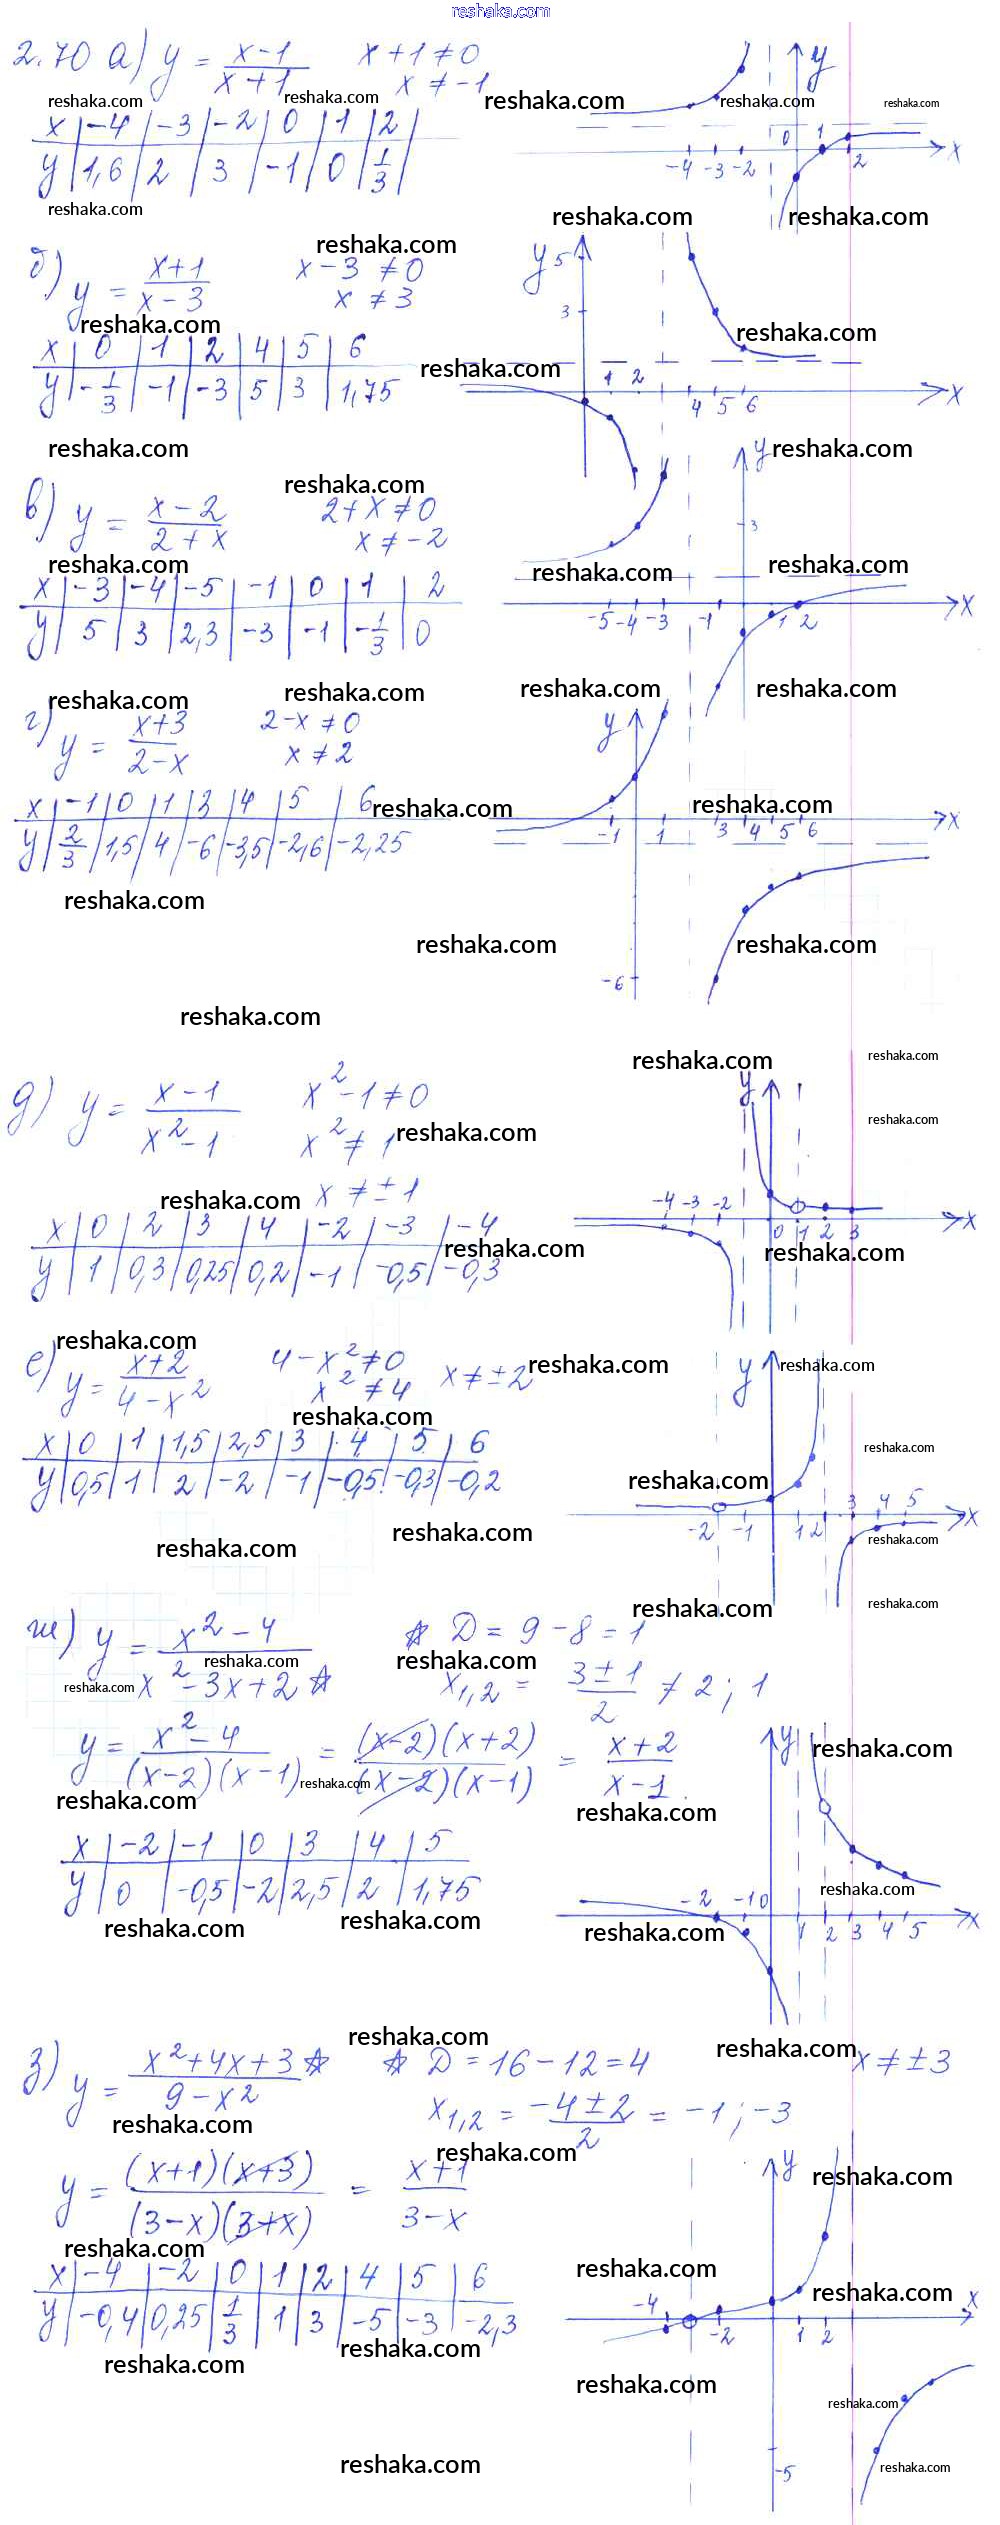 reshaka.com
2.70 а) y = (x-1)/(x+1)   x+1≠0
x≠-1
x | -4 | -3 | -2 | 0 | 1 | 2
y | 1,6 | 2 | 3 | -1 | 0 | 1/3
y
0 1 2 x
-4 -3 -2
б) y = (x+1)/(x-3)   x-3≠0
x≠3
x | 0 | 1 | 2 | 4 | 5 | 6
y | -1/3 | -1 | -3 | 5 | 3 | 1,75
y 5
3
1 2 4 5 6 x
в) y = (x-2)/(2+x)   2+x≠0
x≠-2
x | -3 | -4 | -5 | -1 | 0 | 1 | 2
y | 5 | 3 | 2,3 | -3 | -1 | -1/3 | 0
y
3
-5 -4 -3 -1 1 2 x
г) y = (x+3)/(2-x)   2-x≠0
x≠2
x | -1 | 0 | 1 | 3 | 4 | 5 | 6
y | 2/3 | 1,5 | 4 | -6 | -3,5 | -2,6 | -2,25
y
-1 1 3 4 5 6 x
-6
д) y = (x-1)/(x²-1)   x²-1≠0
x²≠1
x≠±1
x | 0 | 2 | 3 | 4 | -2 | -3 | -4
y | 1 | 0,3 | 0,25 | 0,2 | -1 | -0,5 | -0,3
y
-4 -3 -2 0 1 2 3 x
е) y = (x+2)/(4-x²)   4-x²≠0
x²≠4   x≠±2
x | 0 | 1 | 1,5 | 2,5 | 3 | 4 | 5 | 6
y | 0,5 | 1 | 2 | -2 | -1 | -0,5 | -0,3 | -0,2
y
-2 -1 1 2 3 4 5 x
ж) y = (x²-4)/(x²-3x+2)☆   ☆ D = 9-8 = 1
x₁,₂ = (3±1)/2 ≠ 2; 1
y = (x²-4)/((x-2)(x-1)) = ((x-2)(x+2))/((x-2)(x-1)) = (x+2)/(x-1)
x | -2 | -1 | 0 | 3 | 4 | 5
y | 0 | -0,5 | -2 | 2,5 | 2 | 1,75
y
-2 -1 0 1 2 3 4 5 x
з) y = (x²+4x+3☆)/(9-x²)   ☆ D = 16-12 = 4   x≠±3
x₁,₂ = (-4±2)/2 = -1; -3
y = ((x+1)(x+3))/((3-x)(3+x)) = (x+1)/(3-x)
x | -4 | -2 | 0 | 1 | 2 | 4 | 5 | 6
y | -0,4 | 0,25 | 1/3 | 1 | 3 | -5 | -3 | -2,3
y
-4 -2 1 2 x
-5